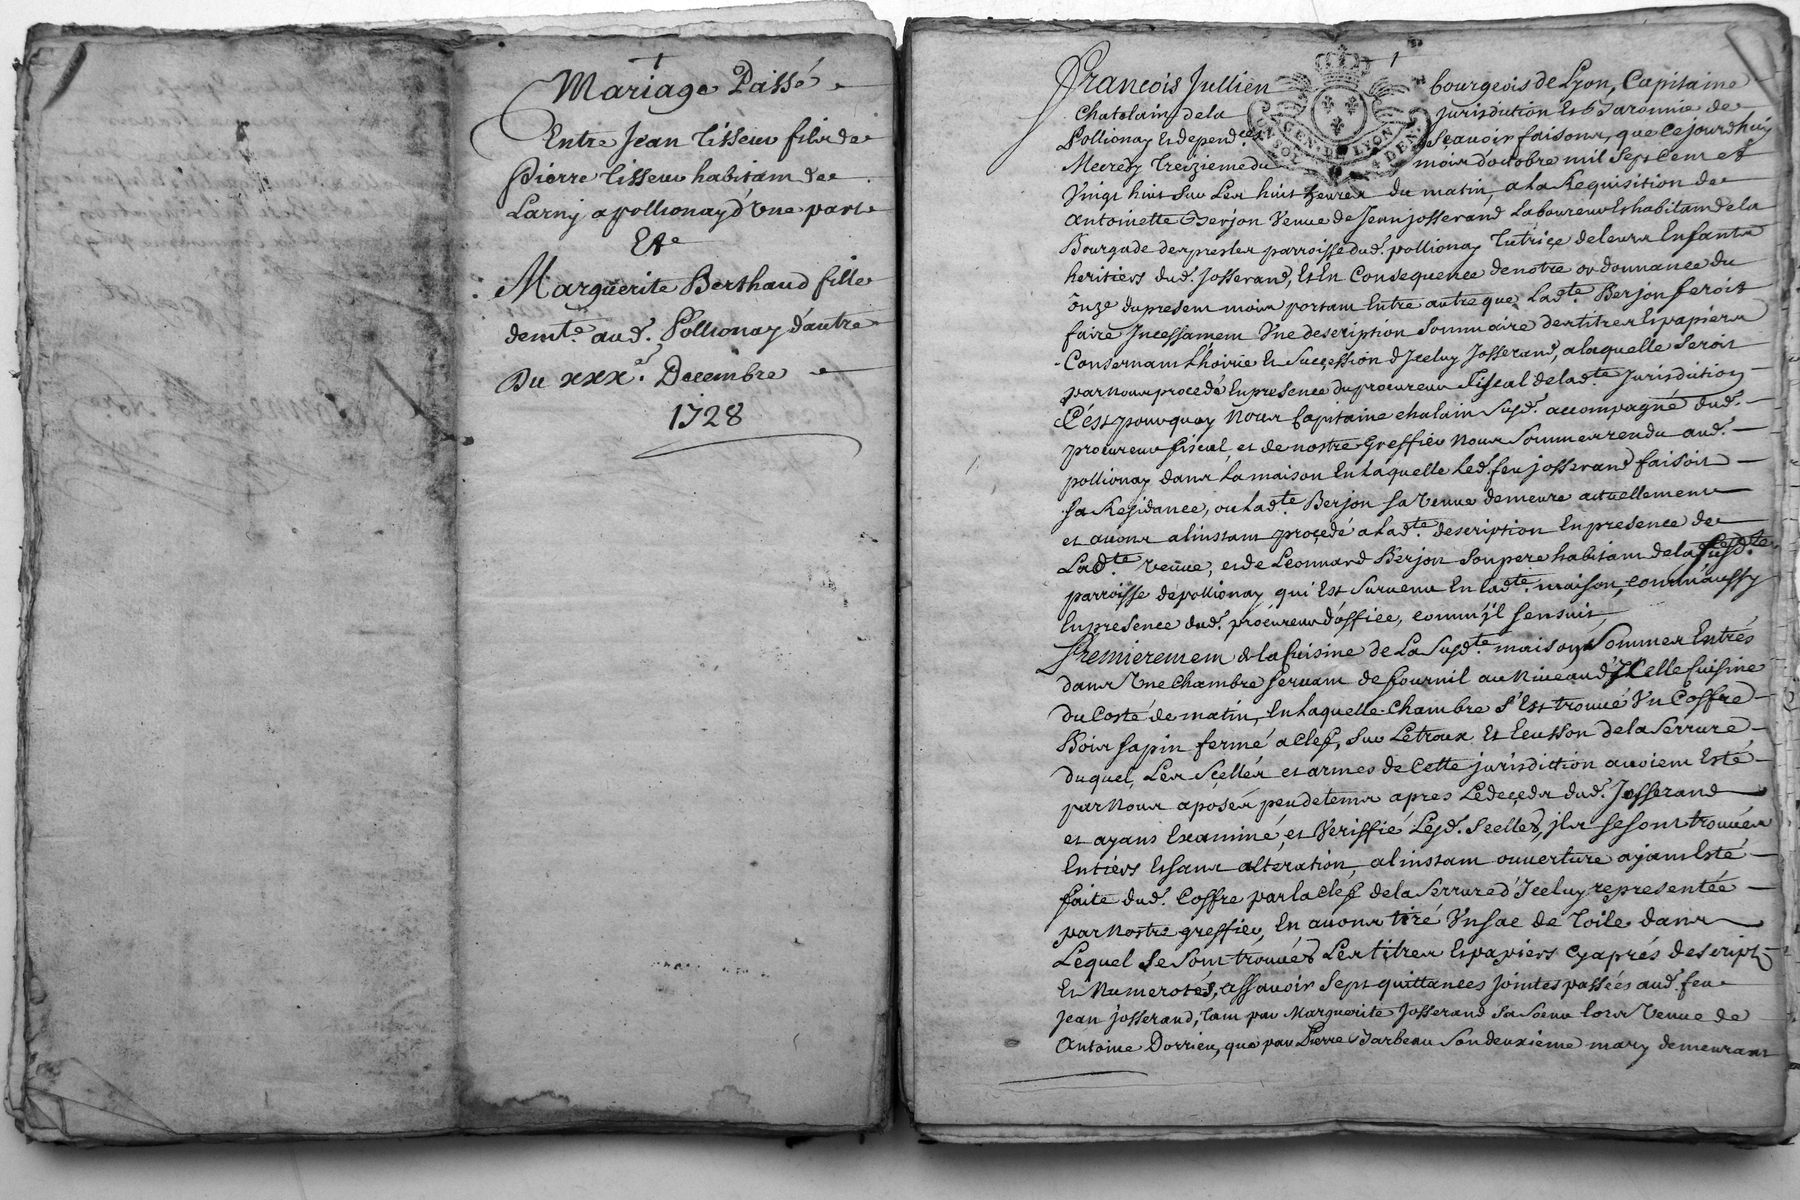 Mariage Passé
Entre Jean Tisseur fils de
Pierre Tisseur habitant de
Larny a pollionay d'Une part
Et
Marguerite Berthaud fille
demte. aud. Pollionay d'autre
Du xxxe. Decembre
1728
François Jullien bourgeois de Lyon, Capitaine
Chatelain de la jurisdiction Et Baronnie de
Pollionay et dependces. Sçauoir faisons, que Cejourdhuy
Mecredy Treizieme du mois d'octobre mil Sept Cent et
GEN. DE LYON
SOL 4 DEN
Vingt huit Sur Les huit heures du matin, a La Requisition de
Antoinette Berjon Veuue de Jean josserand Laboureur Et habitant de la
Bourgade de presles parroisse dud. pollionay Tutrice de leurs Enfants
heritiers dud. Josserand, Et En Consequence de notre ordonnance du
onze du present mois portant Entre autre que Ladte. Berjon feroit
faire Incessament Vne description Sommaire des titres Et papiers
Consernant L'hoirie Et Succession d'Iceluy Josserand, a laquelle Seroit
par nous procedé En presence du procureur Fiscal de ladte. Jurisdiction
C'est pourquoy Nous Capitaine chatelain Susd. accompagné dud.
procureur fiscal, et de nostre Greffier Nous Sommes rendu aud.
pollionay dans La maison En Laquelle Led. feu josserand faisoit
Sa Residance, ou Ladte. Berjon Sa Veuue demeure actuellement
et auons a linstant procedé a Ladte. description En presence de
Ladte. veuue, et de Leonnard Berjon Son pere habitant de la Susdte.
parroisse de pollionay qui Est Suruenu En ladte. maison, comm'aussy
En presence dud. procureur d'office, comm'il s'ensuit
Premierement de la Cuisine de La Susdte. maison Sommes Entrés
dans Vne Chambre seruant de fournil au Niueau d'Icelle Cuisine
du Costé de matin, En Laquelle Chambre s'Est trouué Vn Coffre
Bois sapin fermé a Clef, Sur Letroux Et Lecusson de la Serrure
duquel, Les Scellés et armes de Cette jurisdiction auoient Esté
par Nous aposés peu de tems apres Le deceds dud. Josserand
et ayans Examiné, et Veriffié Lesd. Scellés, jls se sont trouués
Entiers Et sans alteration, a linstant ouuerture ayant Esté
faite dud. Coffre par la Clef de la Serrure d'Iceluy representée
par Nostre greffier, En auons tiré Vn sac de Toile dans
Lequel Se Sont trouués Les titres Et papiers Cy aprés descript
Et Numerotés, assauoir Sept quittances Jointes passées aud. feu
Jean josserand, Tant par Marguerite Josserand Sa Soeur Lors Veuue de
Antoine Dorrieu, que par Pierre Barbeau Son deuxieme mary demeurant